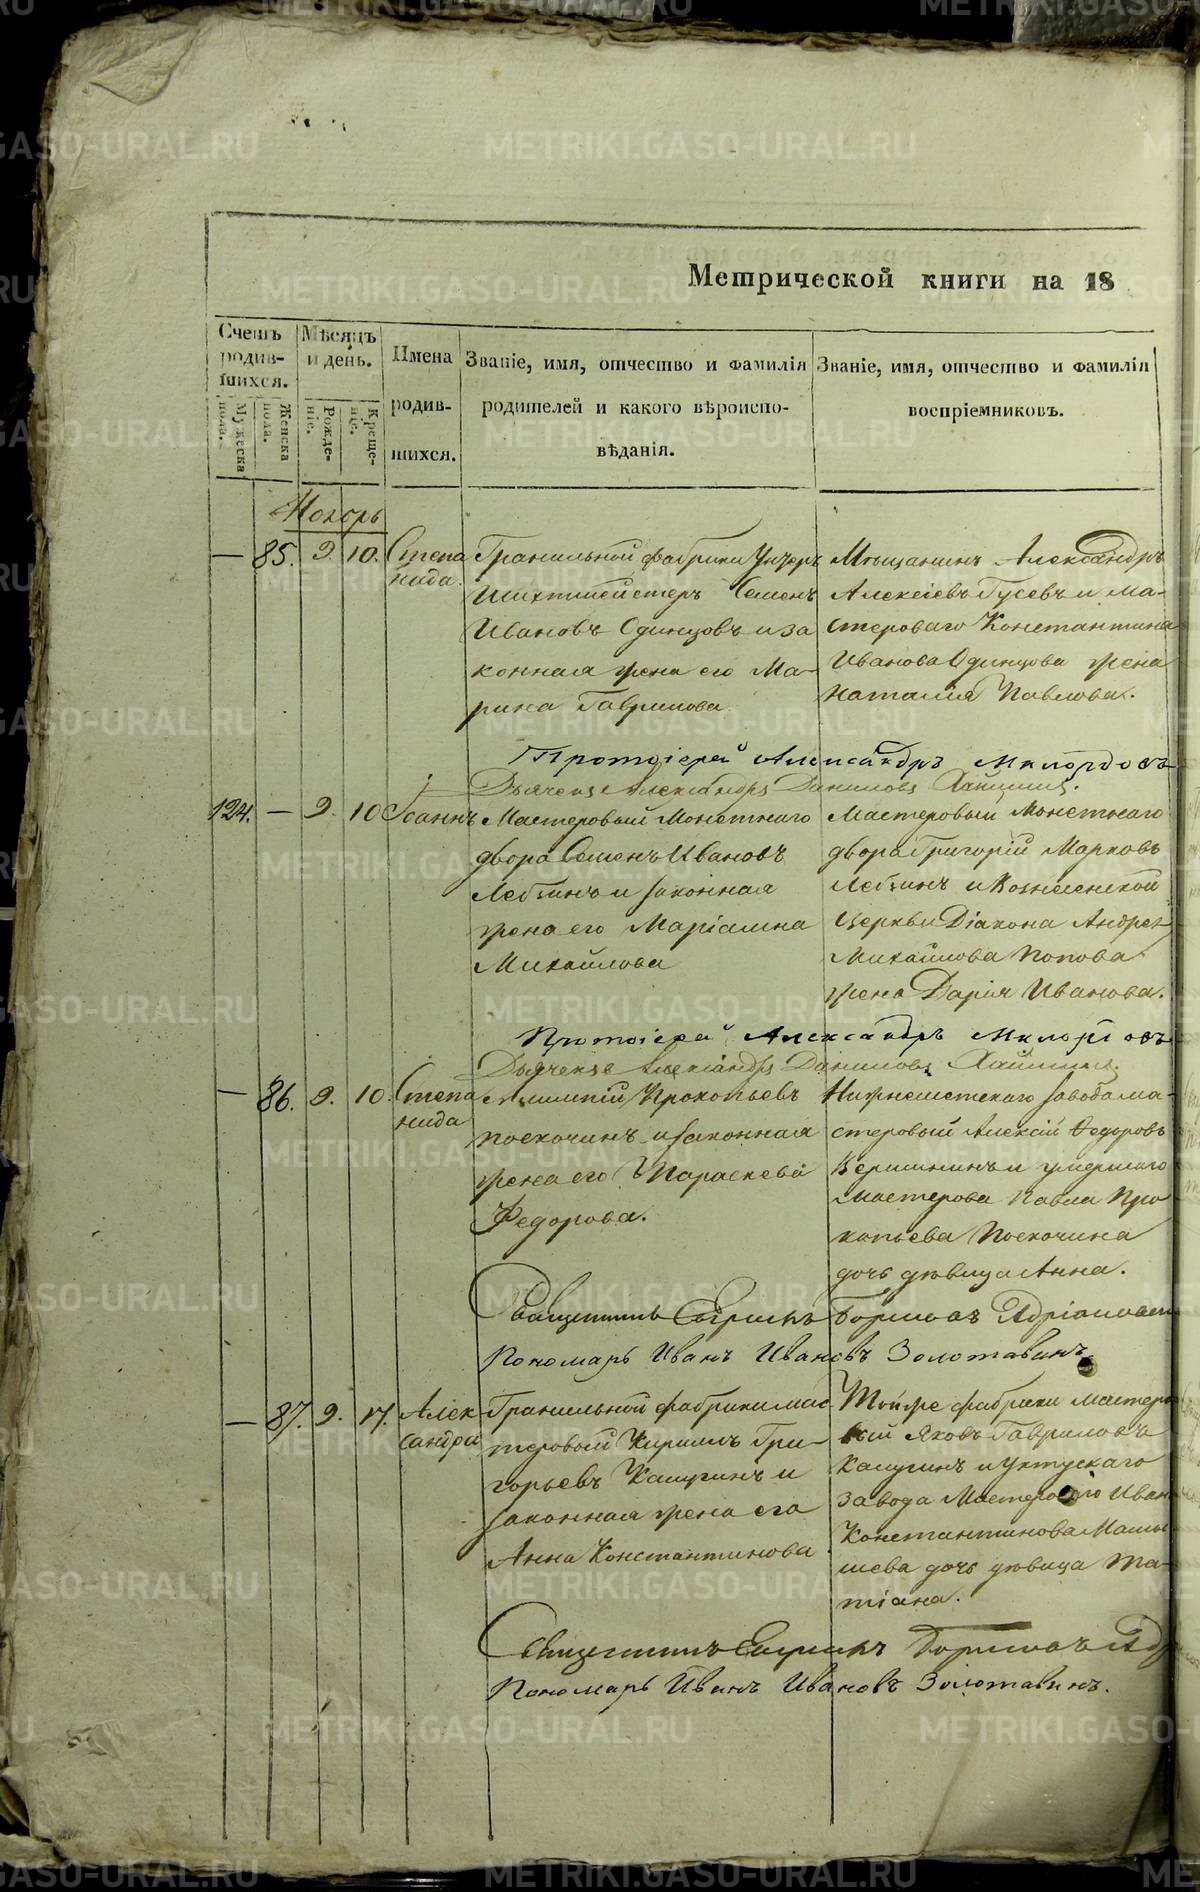 Метрической книги на 18
Счетъ родив- шихся.
Мужеска пола.
Женска пола.
Мѣсяцъ и день.
Рожде- нія.
Креще- нія.
Имена родив- шихся.
Званіе, имя, отчество и фамилія
родителей и какого вѣроиспо-
вѣданія.
Званіе, имя, отчество и фамилія
воспріемниковъ.
Ноябрь
— 85. 9. 10. Степа
нида.
Гранильной фабрики Унтеръ
Шихтмейстеръ Семенъ
Ивановъ Одинцовъ и за
конная жена его Ма-
рина Гаврилова.
Мѣщанинъ Александръ
Алексѣевъ Гусевъ и ма-
стероваго Константина
Иванова Одинцова жена
Наталія Павлова.
Протоіерей Александръ Милордовъ
Дьячекъ Александръ Даниловъ
124. — 9. 10 Іоаннъ
Мастеровый Монетнаго
двора Семенъ Ивановъ
Лебзинъ и законная
жена его Маріамна
Михайлова
Мастеровый Монетнаго
двора Григорій Марковъ
Лебзинъ и Вознесенской
Церкви Діакона Андрея
Михайлова Попова
жена Дарія Иванова.
Протоіерей Александръ Милордовъ
Дьячекъ Александръ Даниловъ
— 86. 9. 10. Степа
нида
Прокопьевъ
Поскочинъ и законная
жена его Параскева
Федорова.
Нижнеисетскаго завода ма-
стеровый Алексій Федоровъ
Вершининъ и умершаго
Мастерова Павла Про
копьева Поскочина
дочь дѣвица Анна.
Священникъ
Пономарь Иванъ Ивановъ Золотавинъ
— 87. 9. 17. Алек
сандра
Гранильной фабрики мас
теровый Кирилъ Гри-
горьевъ Калугинъ и
законная жена его
Анна Константинова
Тойже фабрики мастеро
вый Яковъ Гавриловъ
Калугинъ и Уктускаго
завода Мастероваго Иван
Константинова Малы
шева дочь дѣвица Та-
тіана.
Священникъ
Пономарь Иванъ Ивановъ Золотавинъ.
METRIKI.GASO-URAL.RU